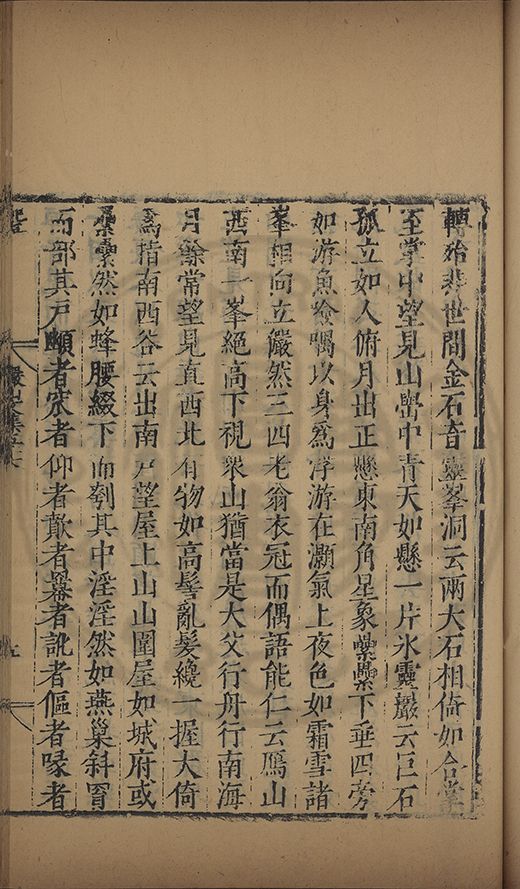 轉殆非世間金石音靈峯洞云兩大石相倚如合掌
至掌中望見山罅中青天如懸一片氷靈巖云巨石
孤立如人俯月出正懸東南角星象纍纍下垂四旁
如游魚噞喁以身爲浮游在灝氣上夜色如霜雪諸
峯相向立儼然三四老翁衣冠而偶語能仁云鴈山
西南一峯絕高下視衆山猶當是大父行舟行南海
月餘常望見直西北有物如高髻亂髮纔一握大倚
爲指南西谷云出南戸望屋上山山圍屋如城府或
纍纍然如蜂腰綴下而刳其中淫淫然如燕巢斜冒
而部其戸顱者㝱者仰者欹者冪者訛者傴者喙者